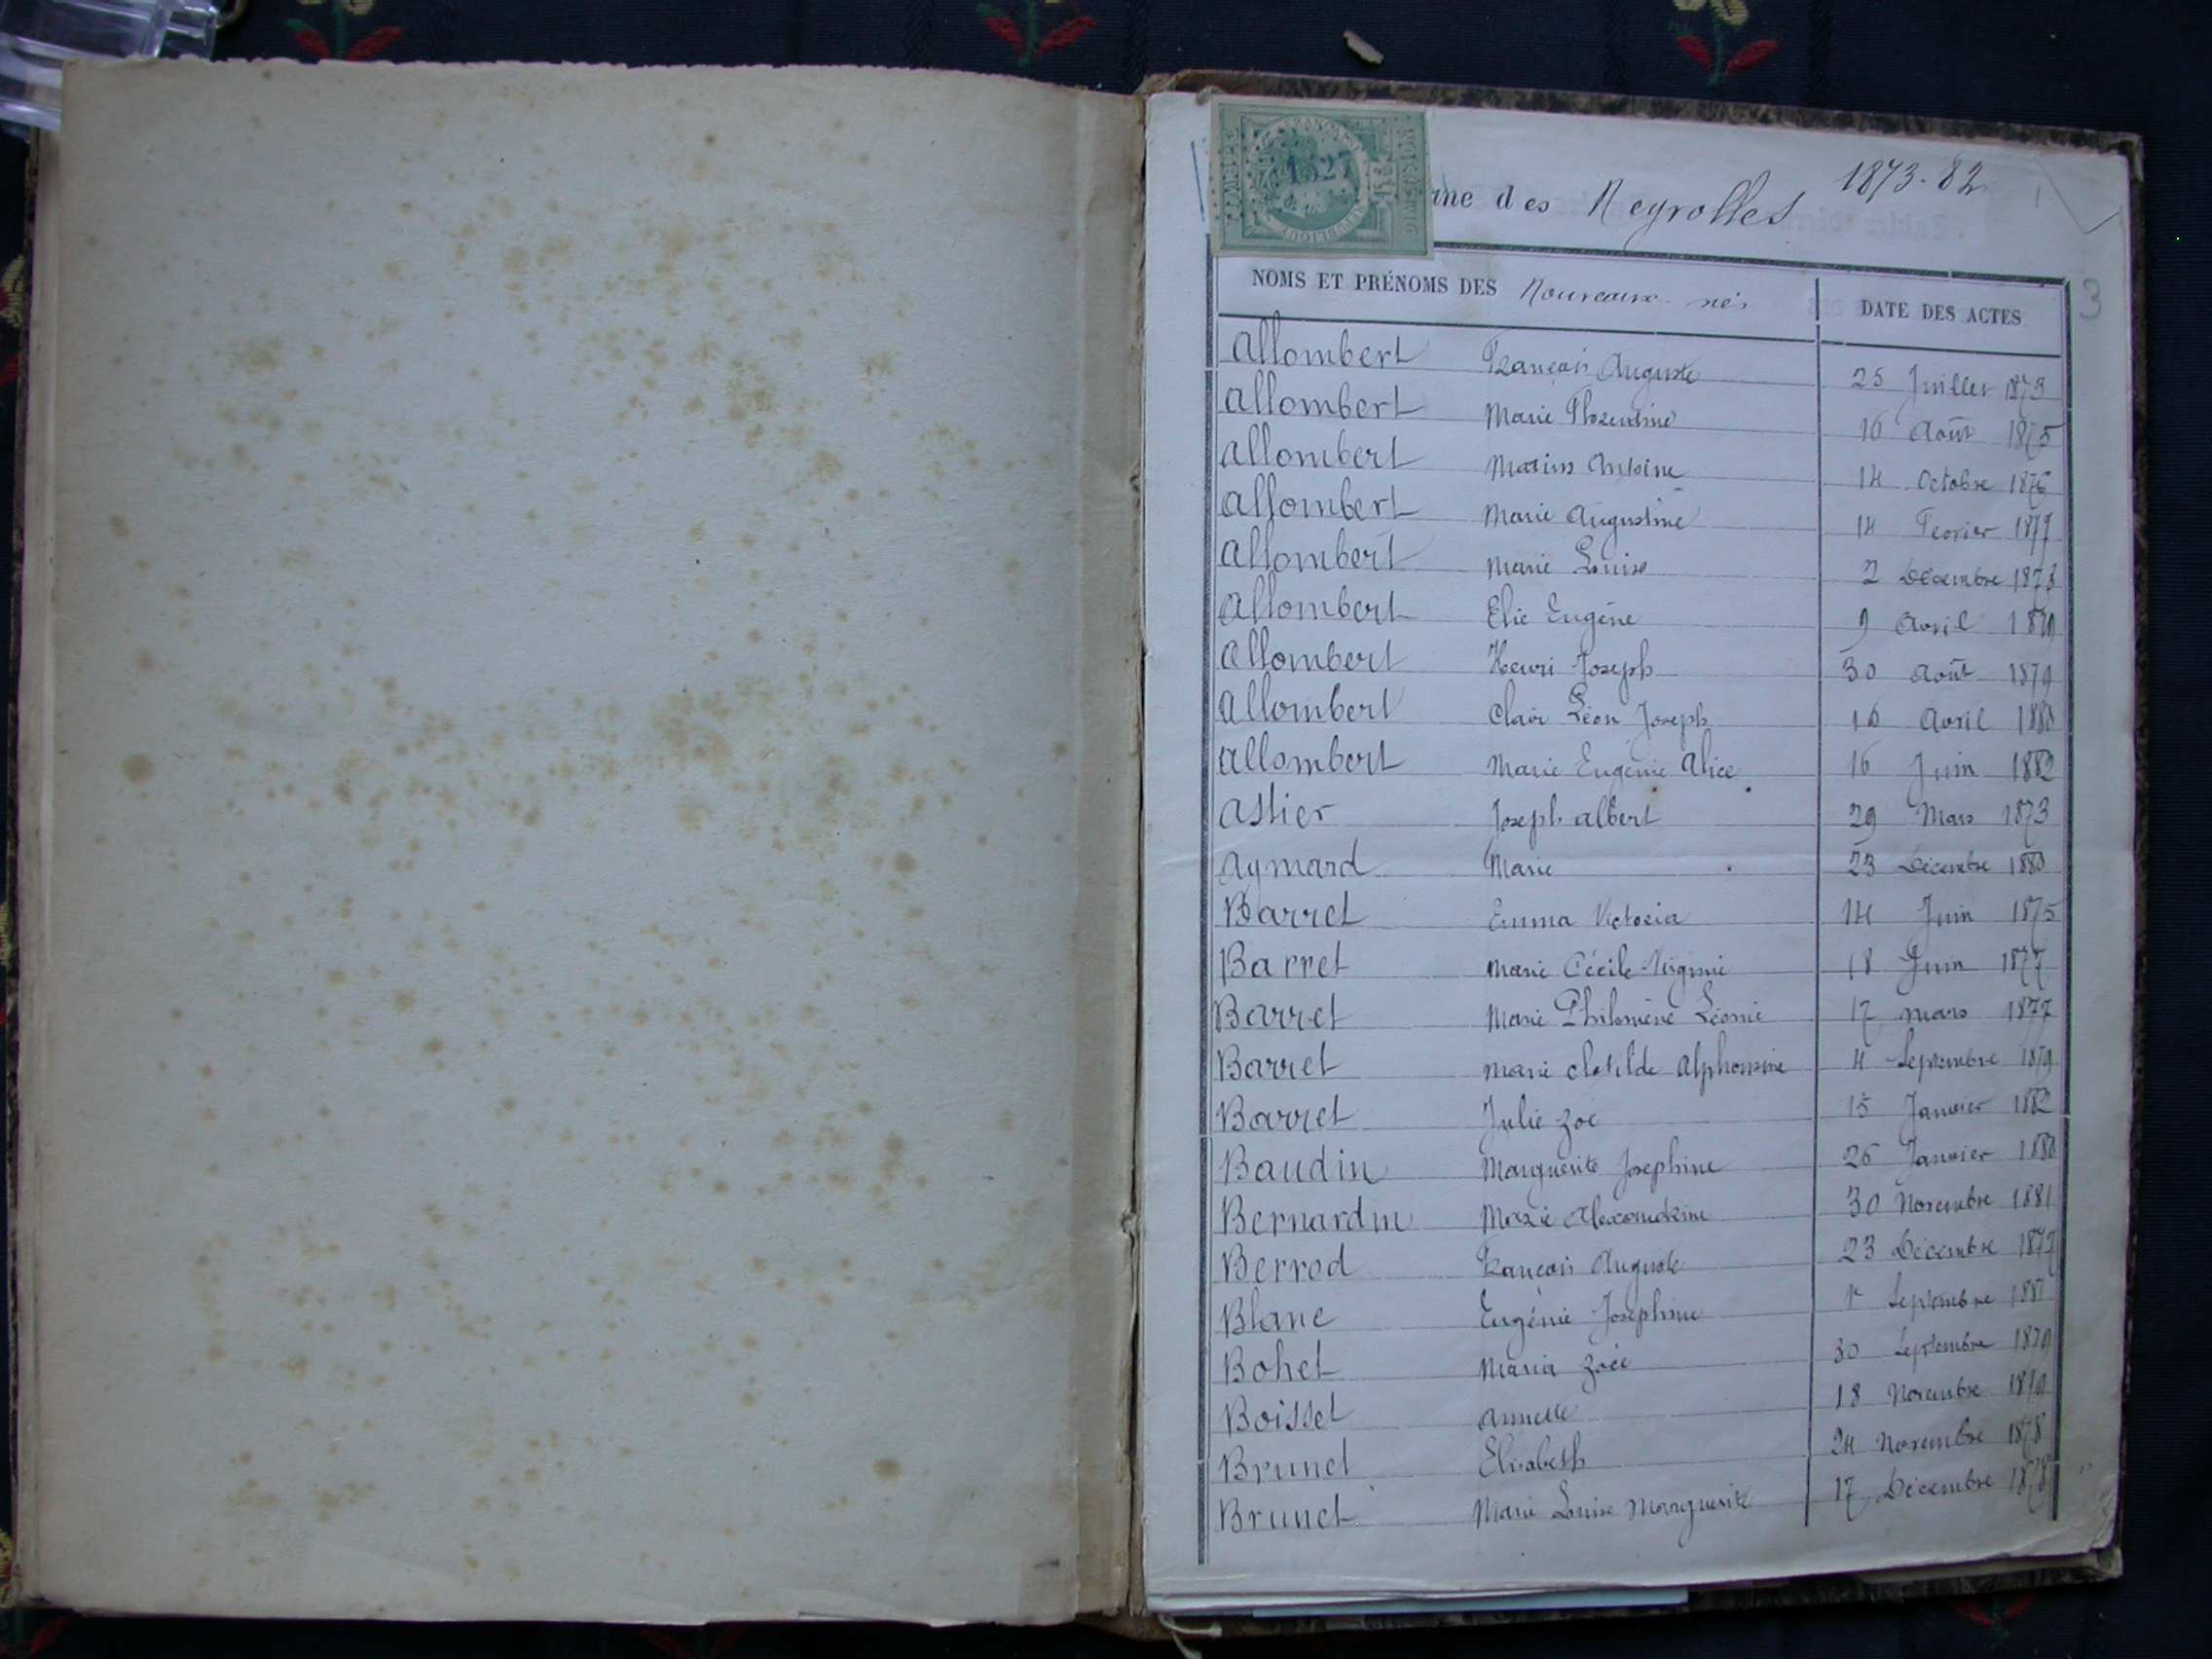 1873-82
ne des Neyrolles
3
NOMS ET PRÉNOMS DES Nouveaux-nés DATE DES ACTES
Allombert François Auguste 25 Juillet 1873
Allombert Marie Florentine 16 Août 1875
Allombert Marius Antoine 14 Octobre 1876
Allombert Marie Augustine 14 Fevrier 1877
Allombert Marie Louise 2 Décembre 1878
Allombert Elie Eugène 9 Avril 1879
Allombert Henri Joseph 30 Août 1879
Allombert Clair Léon Joseph 16 Avril 1880
Allombert Marie Eugénie Alice 16 Juin 1882
Astier Joseph Albert 29 Mars 1873
Aymard Marie 23 Décembre 1880
Barret Emma Victoria 14 Juin 1875
Barret Marie Cécile Virginie 18 Juin 1877
Barret Marie Philomène Léonie 17 mars 1877
Barret Marie Clotilde Alphonsine 4 Septembre 1879
Barret Julie Zoé 15 Janvier 1882
Baudin Marguerite Josephine 26 Janvier 1880
Bernardin Marie Alexandrine 30 Novembre 1881
Berrod François Auguste 23 Décembre 1877
Blanc Eugénie Joséphine 1r Septembre 1881
Bohet Maria Zoée 30 Septembre 1879
Boisset Annette 18 Novembre 1879
Brunet Elisabeth 24 Novembre 1878
Brunet Marie Louise Marguerite 17 Décembre 1878